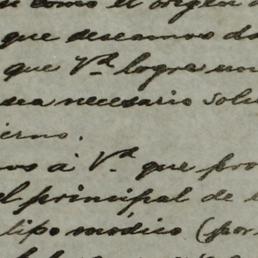 como el origen d
que deseamos da
que V.ᵈ logre un
sea necesario solu
ierno.
mos á V.ᵈ que pro
el principal de e
tipo médico (por